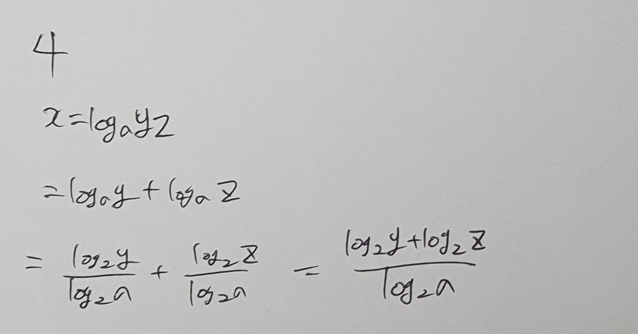 4
x=logₐyz
=logₐy+logₐz
= log₂y/log₂a + log₂z/log₂a = (log₂y+log₂z)/log₂a